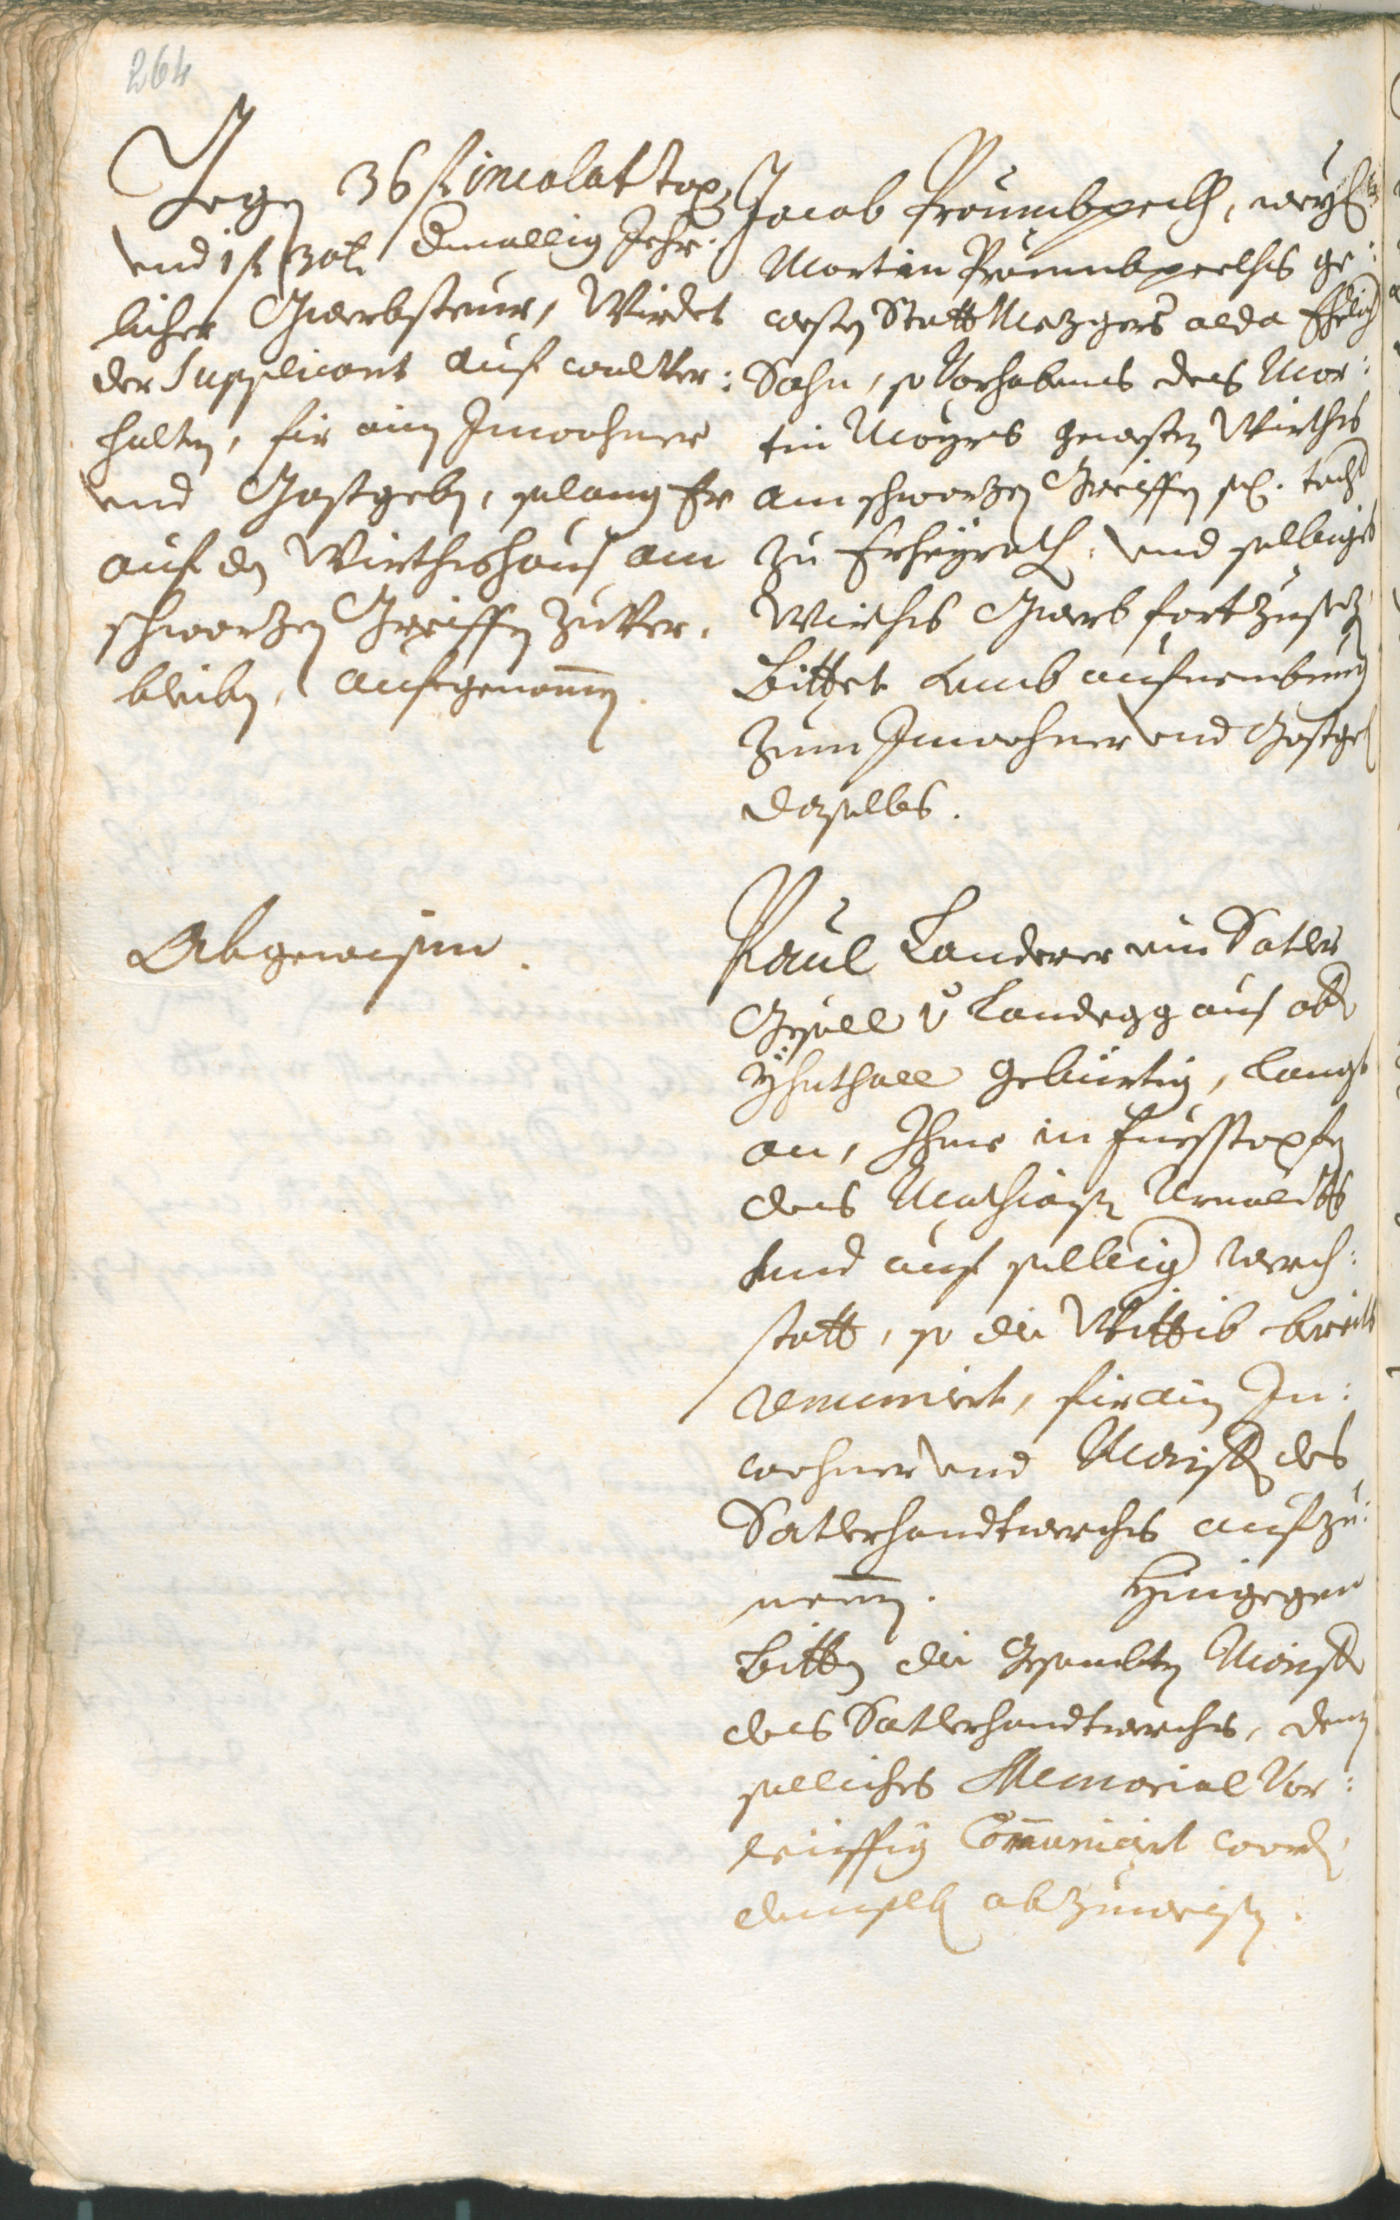 264
Gegen 36 fl incolat tax,
und 1 fl 30 k: dermallig Jehr:
licher Gwerbsteur, Wirdet
der Supplicant auf wolver:
halten, fir ain Inwohner
und Gastgeben, solang Er
auf den Wirthshaus am
schwarzen Greiffen zuver:
bleiben, aufgenomen.
Jacob Praumbpech, weyl:
Martin Praumbpechs ge:
westen Statt Mezgers alda Ehelich
Sohn, so Vorhabens des Mar:
tin Mayrs gewesten Wirths
am schwarzen Greiffen sel. Tocht
zu Erheyrath, und selbigs
Wirths Gwerb fortzusetzen
Bittet umb aufnembung
zum Inwohner und Gastgeb
daselbs.
Abgewisen.
Paul Landerer ein Satler
Gesell v Landegg aus ob
Yhnthall gebürtig, langt
an, Ihme in Fuesstapfen
des Mathiasen Arnoldts
und auf selbig Werch:
statt, so die Wittib bereits
renunciert, fir ain In:
wohner und Maister des
Satlerhandtwerchs aufzu:
nemen. Hingegen
Bitten die Gesambten Maister
des Satlerhandtwerchs, denen
solliches Memorial Vor:
leiffig Comunicirt word,
denselb abzuweisen.